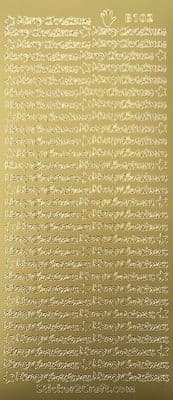 Merry Christmas B102
Merry Christmas Merry Christmas
Merry Christmas Merry Christmas
Merry Christmas Merry Christmas
Merry Christmas Merry Christmas
Merry Christmas Merry Christmas
Merry Christmas Merry Christmas
Merry Christmas Merry Christmas
Merry Christmas Merry Christmas
Merry Christmas Merry Christmas
Merry Christmas Merry Christmas
Merry Christmas Merry Christmas
Merry Christmas Merry Christmas
Merry Christmas Merry Christmas
Merry Christmas Merry Christmas
Merry Christmas Merry Christmas
Merry Christmas Merry Christmas
Merry Christmas Merry Christmas
Merry Christmas Merry Christmas
Merry Christmas Merry Christmas
Merry Christmas Merry Christmas
Merry Christmas Merry Christmas
Merry Christmas Merry Christmas
Merry Christmas Merry Christmas
Merry Christmas Merry Christmas
Merry Christmas Merry Christmas
Merry Christmas Merry Christmas
Merry Christmas Merry Christmas
Merry Christmas Merry Christmas
Merry Christmas Merry Christmas
Sticker2Craft.com